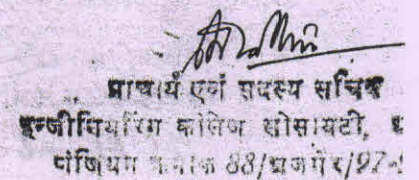 प्राचार्य एवं सदस्य सचिव
इन्जीनियरिंग कॉलेज सोसायटी,
पंजियन क्रमांक 88/अजमेर/97-